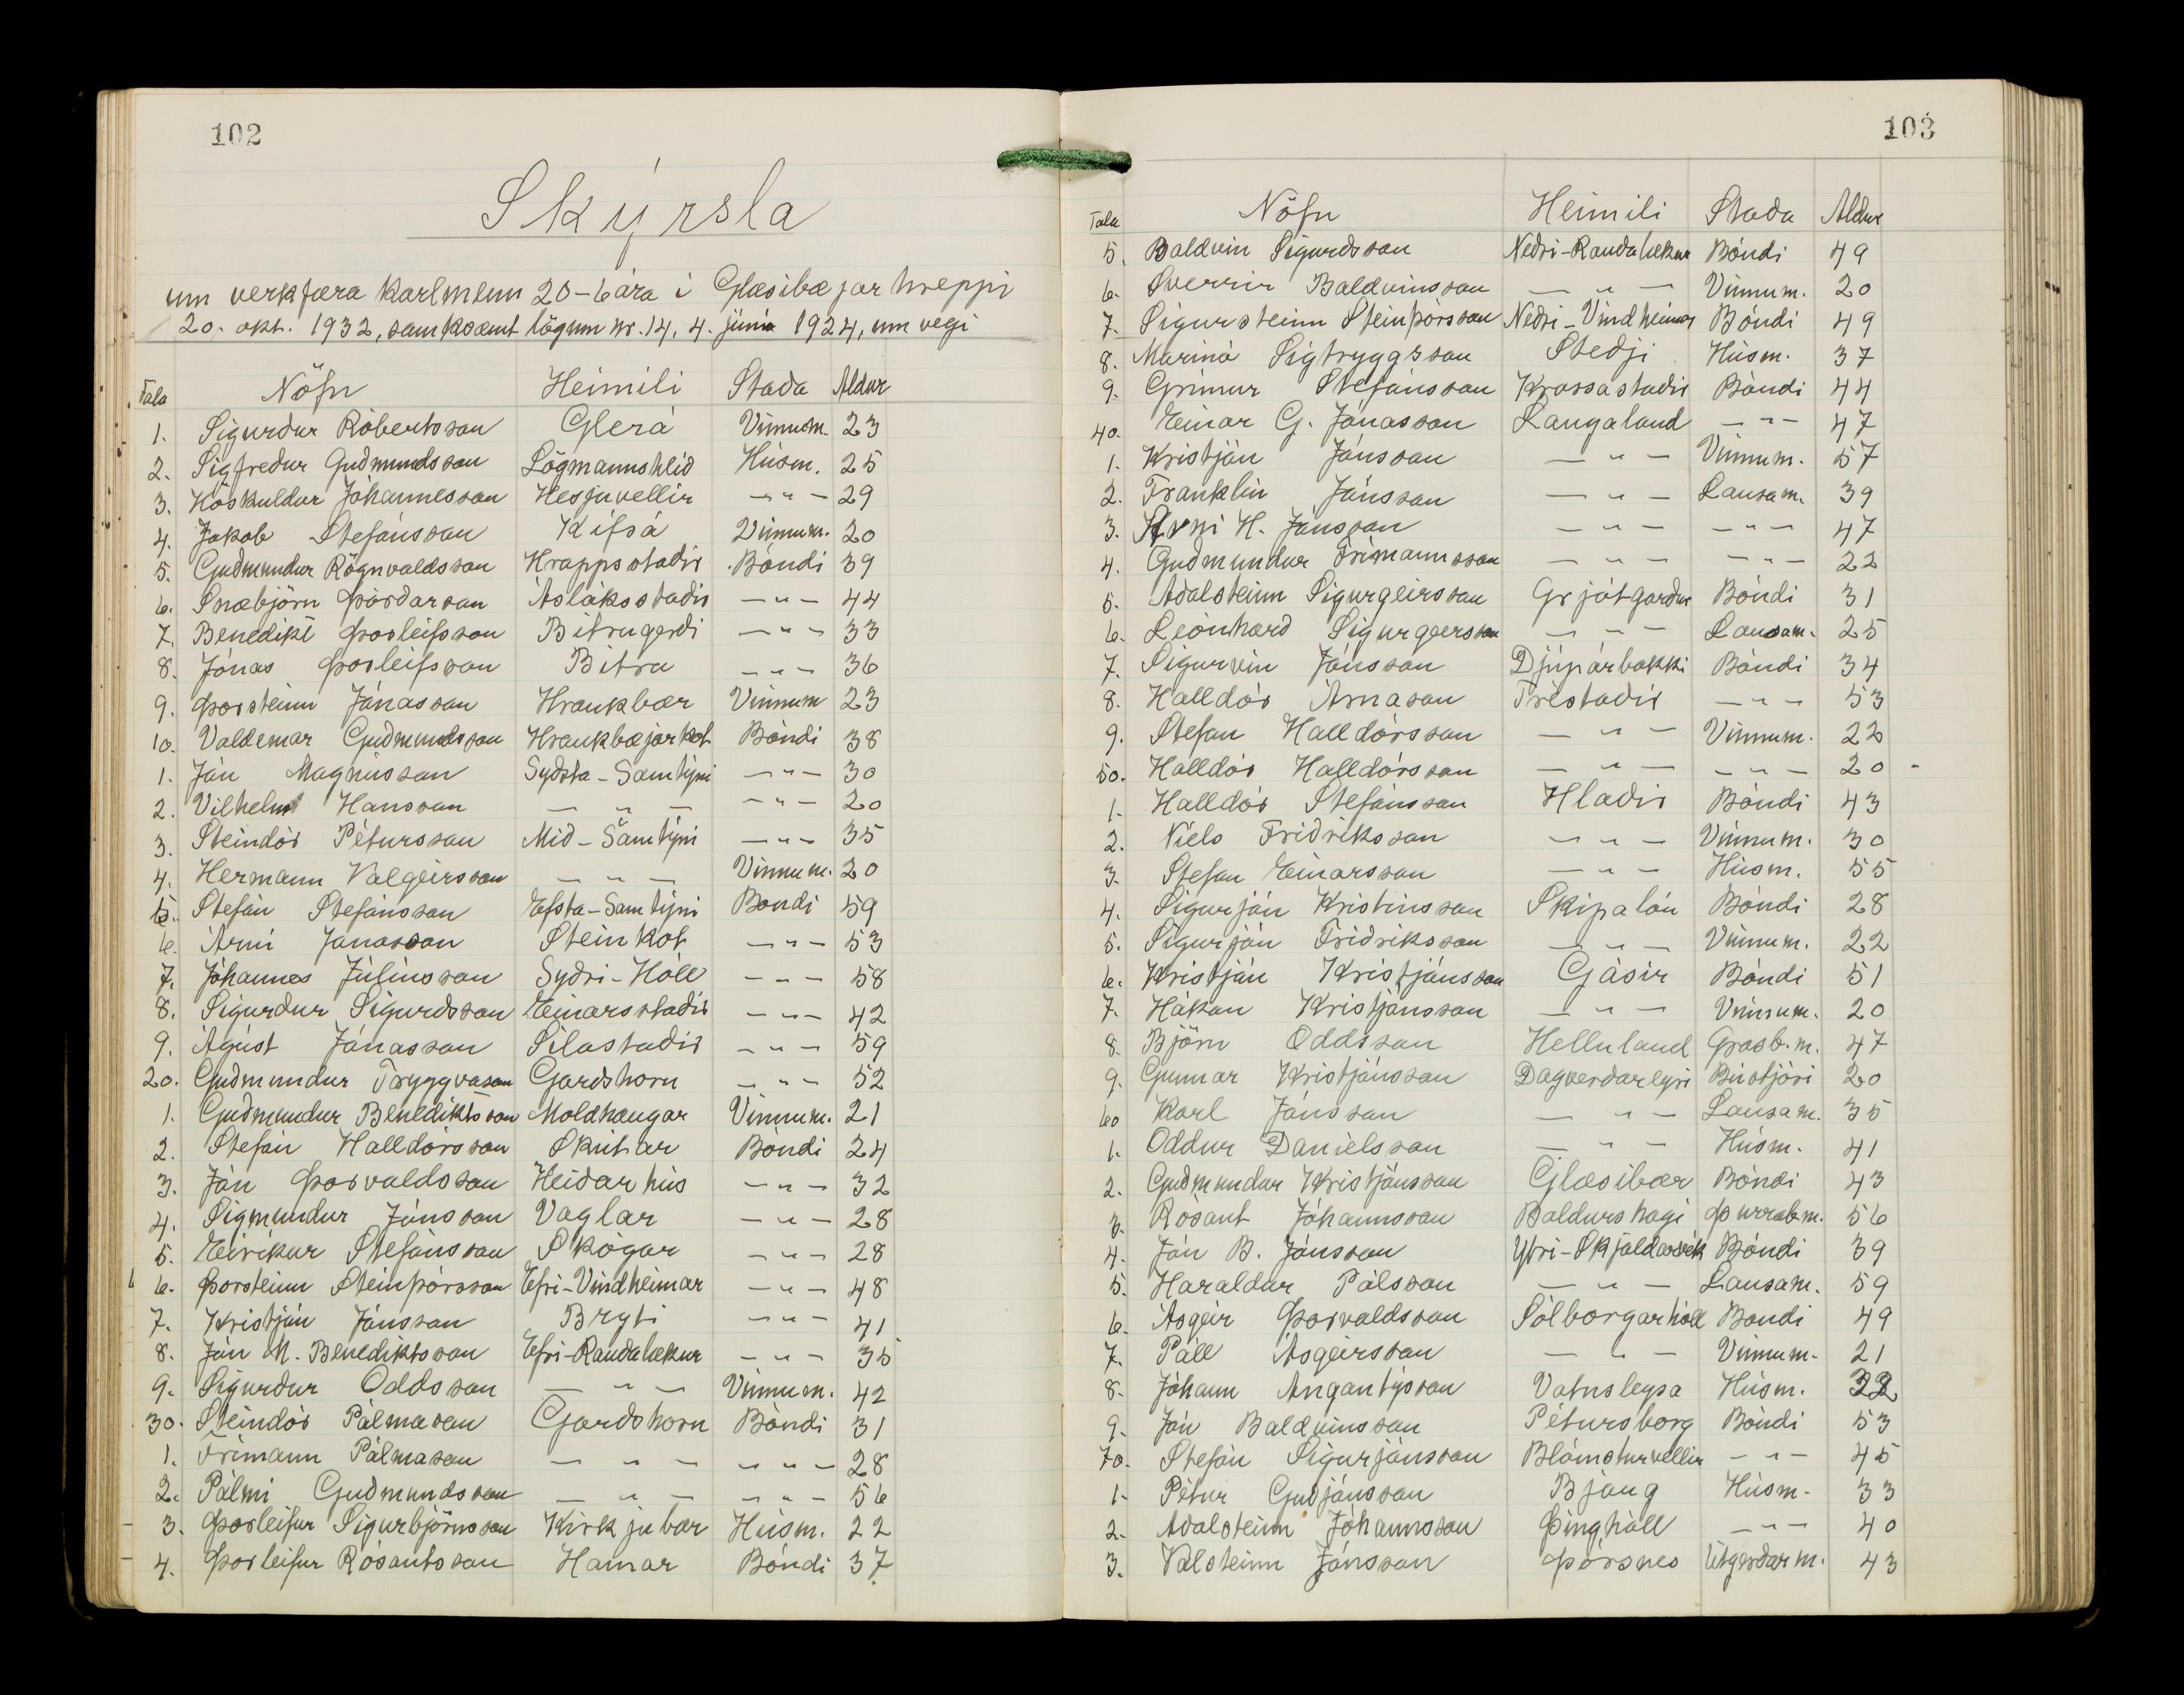 102
Skýrsla
um verkfæra karlmenn 20-6 ára í Glæsibæjarhreppi
20. okt. 1932, samkvæmt lögum nr. 14, 4. júní 1924, um vegi
Tala Nöfn Heimili Staða Aldur
1. Sigurður Róbertsson Glerá Vinnum. 23
2. Sigfreður Guðmundsson Lögmannshlíð Húsm. 25
3. Höskuldur Jóhannesson Hesjuvellir — " — 29
4. Jakob Stefánsson Kífsá Vinnum. 20
5. Guðmundur Rögnvaldsson Hrappsstaðir Bóndi 39
6. Snæbjörn Þórðarson Ásláksstaðir — " — 44
7. Benedikt Þorleifsson Bitrugerði — " — 33
8. Jónas Þorleifsson Bitra — " — 36
9. Þorsteinn Jónasson Hraukbær Vinnum 23
10. Valdemar Guðmundsson Hraukbæjarkot Bóndi 38
1. Jón Magnússon Syðsta-Samtýni — " — 30
2. Vilhelm Hansson — " — — " — 20
3. Steindór Pétursson Mið-Samtýni — " — 35
4. Hermann Valgeirsson — " — Vinnum. 20
5. Stefán Stefánsson Efsta-Samtýni Bóndi 59
6. Árni Jónasson Steinkot — " — 53
7. Jóhannes Júlíusson Syðri-Hóll — " — 58
8. Sigurður Sigurðsson Einarsstaðir — " — 42
9. Ágúst Jónasson Sílastaðir — " — 59
20. Guðmundur Tryggvason Garðshorn — " — 52
1. Guðmundur Benediktsson Moldhaugar Vinnum. 21
2. Stefán Halldórsson Skútar Bóndi 24
3. Jón Þorvaldsson Heiðarhús — " — 32
4. Sigmundur Jónsson Vaglar — " — 28
5. Eiríkur Stefánsson Skógar — " — 28
6. Þorsteinn Steinþórsson Efri-Vindheimar — " — 48
7. Kristján Jónsson Bryti — " — 41
8. Jón M. Benediktsson Efri-Rauðalækur — " — 35
9. Sigurður Oddsson — " — Vinnum. 42
30. Steindór Pálmason Garðshorn Bóndi 31
1. Frímann Pálmason — " — — " — 28
2. Pálmi Guðmundsson — " — — " — 56
3. Þorleifur Sigurbjörnsson Kirkjubær Húsm. 22
4. Þorleifur Rósantsson Hamar Bóndi 37
103
Tala Nöfn Heimili Staða Aldur
5. Baldvin Sigurðsson Neðri-Rauðalækur Bóndi 49
6. Sverrir Baldvinsson — " — Vinnum. 20
7. Sigursteinn Steinþórsson Neðri-Vindheimar Bóndi 49
8. Marinó Sigtryggsson Steðji Húsm. 37
9. Grímur Stefánsson Krossastaðir Bóndi 44
40. Einar G. Jónasson Laugaland — " — 47
1. Kristján Jónsson — " — Vinnum. 57
2. Franklín Jónsson — " — Lausam. 39
3. Árni H. Jónsson — " — — " — 47
4. Guðmundur Frímannsson — " — — " — 22
5. Aðalsteinn Sigurgeirsson Grjótgarður Bóndi 31
6. Leónharð Sigurgeirsson — " — Lausam. 25
7. Sigurvin Jónsson Djúpárbakki Bóndi 34
8. Halldór Árnason Tréstaðir — " — 53
9. Stefan Halldórsson — " — Vinnum. 22
50. Halldór Halldórsson — " — — " — 20
1. Halldór Stefánsson Hlaðir Bóndi 43
2. Níels Friðriksson — " — Vinnum. 30
3. Stefan Einarsson — " — Húsm. 55
4. Sigurján Kristinsson Skipalón Bóndi 28
5. Sigurján Friðriksson — " — Vinnum. 22
6. Kristján Kristjánsson Gásir Bóndi 51
7. Hákon Kristjánsson — " — Vinnum. 20
8. Björn Oddsson Helluland Grasb.m. 47
9. Gunnar Kristjánsson Dagverðareyri Bústjóri 20
60 Karl Jónsson — " — Lausam. 35
1. Oddur Daníelsson — " — Húsm. 41
2. Guðmundur Kristjánsson Glæsibær Bóndi 43
3. Rósant Jóhannsson Baldurshagi Þurrab.m. 56
4. Jón B. Jónsson Ytri-Skjaldarvík Bóndi 39
5. Haraldur Pálsson — " — Lausam. 59
6. Ásgeir Þorvaldsson Sólborgarhóll Bóndi 49
7. Páll Ásgeirsson — " — Vinnum. 21
8. Jóhann Angantýsson Vatnsleysa Húsm. 32
9. Jón Baldvinsson Pétursborg Bóndi 53
70. Stefán Sigurjónsson Blómsturvellir — " — 45
1. Pétur Guðjónsson Bjarg Húsm. 33
2. Aðalsteinn Jóhannsson Þinghóll — " — 40
3. Valsteinn Jónsson Þórsnes Útgerðarm. 43